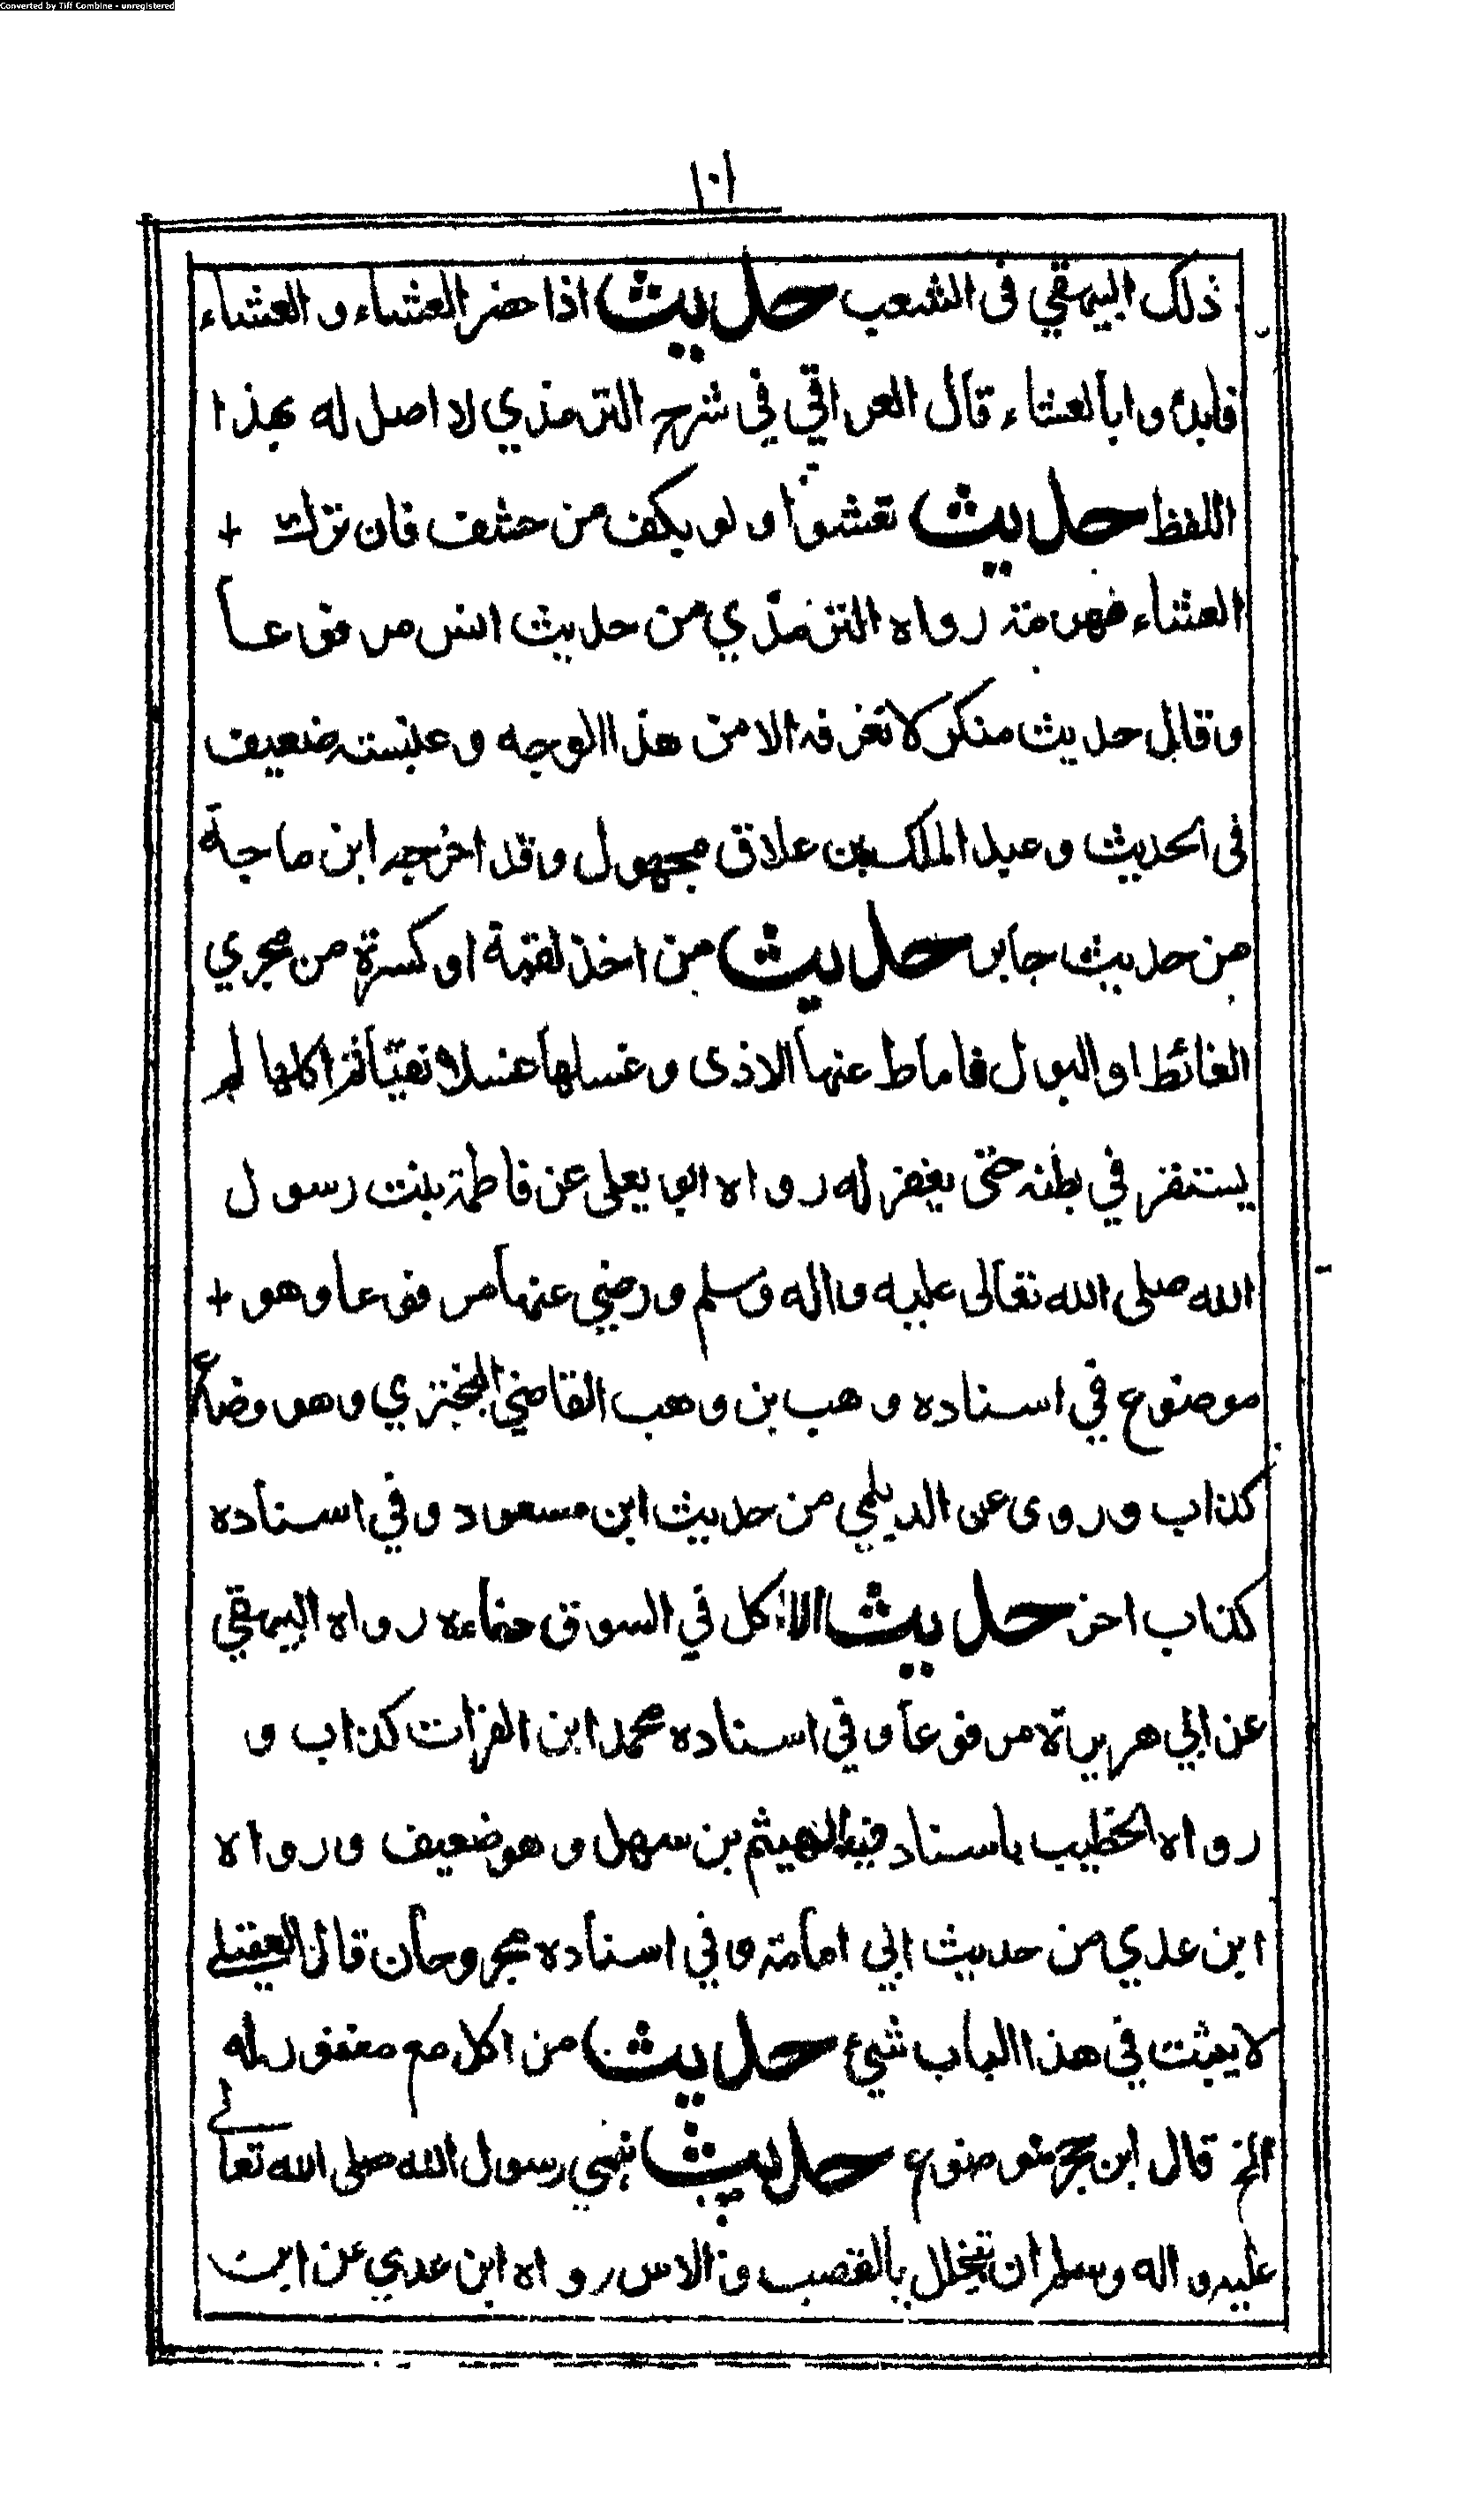 Converted by Tiff Combine - unregistered
١٠١
ذلك البيهقي فى الشعب حديث اذا حضر العشاء و العشاء
فابدؤ وابالعشاء قال العراقي في شرح الترمذي لا اصل له بهذا
اللفظ حديث تعشوا و لو بكف من حشف فان ترك +
العشاء مهرمة رواه الترمذي من حديث انس مرفوعا
وقال حديث منكر لا نعرفه الا من هذا الوجه و عنبسة ضعيف
فى الحديث و عبد الملك بن علاق مجهول وقد اخرجه ابن ماجة
من حديث جابر حديث من اخذ لقمة او كسرة من مجري
الغائط او البول فاماط عنها الاذى و غسلها غسلا نقيا ثم اكلها لم
يستقر في بطنه حتى يغفر له رواه ابو يعلى عن فاطمة بنت رسول
الله صلى الله تعالى عليه واله وسلم ورضي عنها مرفوعا وهو +
موضوع في اسناده وهب بن وهب القاضي البختري وهو وضاع
كذاب وروى عن الديلمي من حديث ابن مسعود وفي اسناده
كذاب اخر حديث الاكل في السوق دناءة رواه البيهقي
عن ابي هريرة مرفوعا وفي اسناده محمد ابن الفرات كذاب و
رواه الخطيب باسناد فيه الهيثم بن سهل وهو ضعيف ورواه
ابن عدي من حديث ابي امامة وفي اسناده مجروحان قال العقيلے
لا يثبت فى هذا الباب شئ حديث من اكل مع مغفور له
الخ قال ابن حجر موضوع حديث نهى رسول الله صلى الله تعالے
عليه و اله وسلم ان تتخلل بالقصب والاس رواه ابن عدي عن ابن